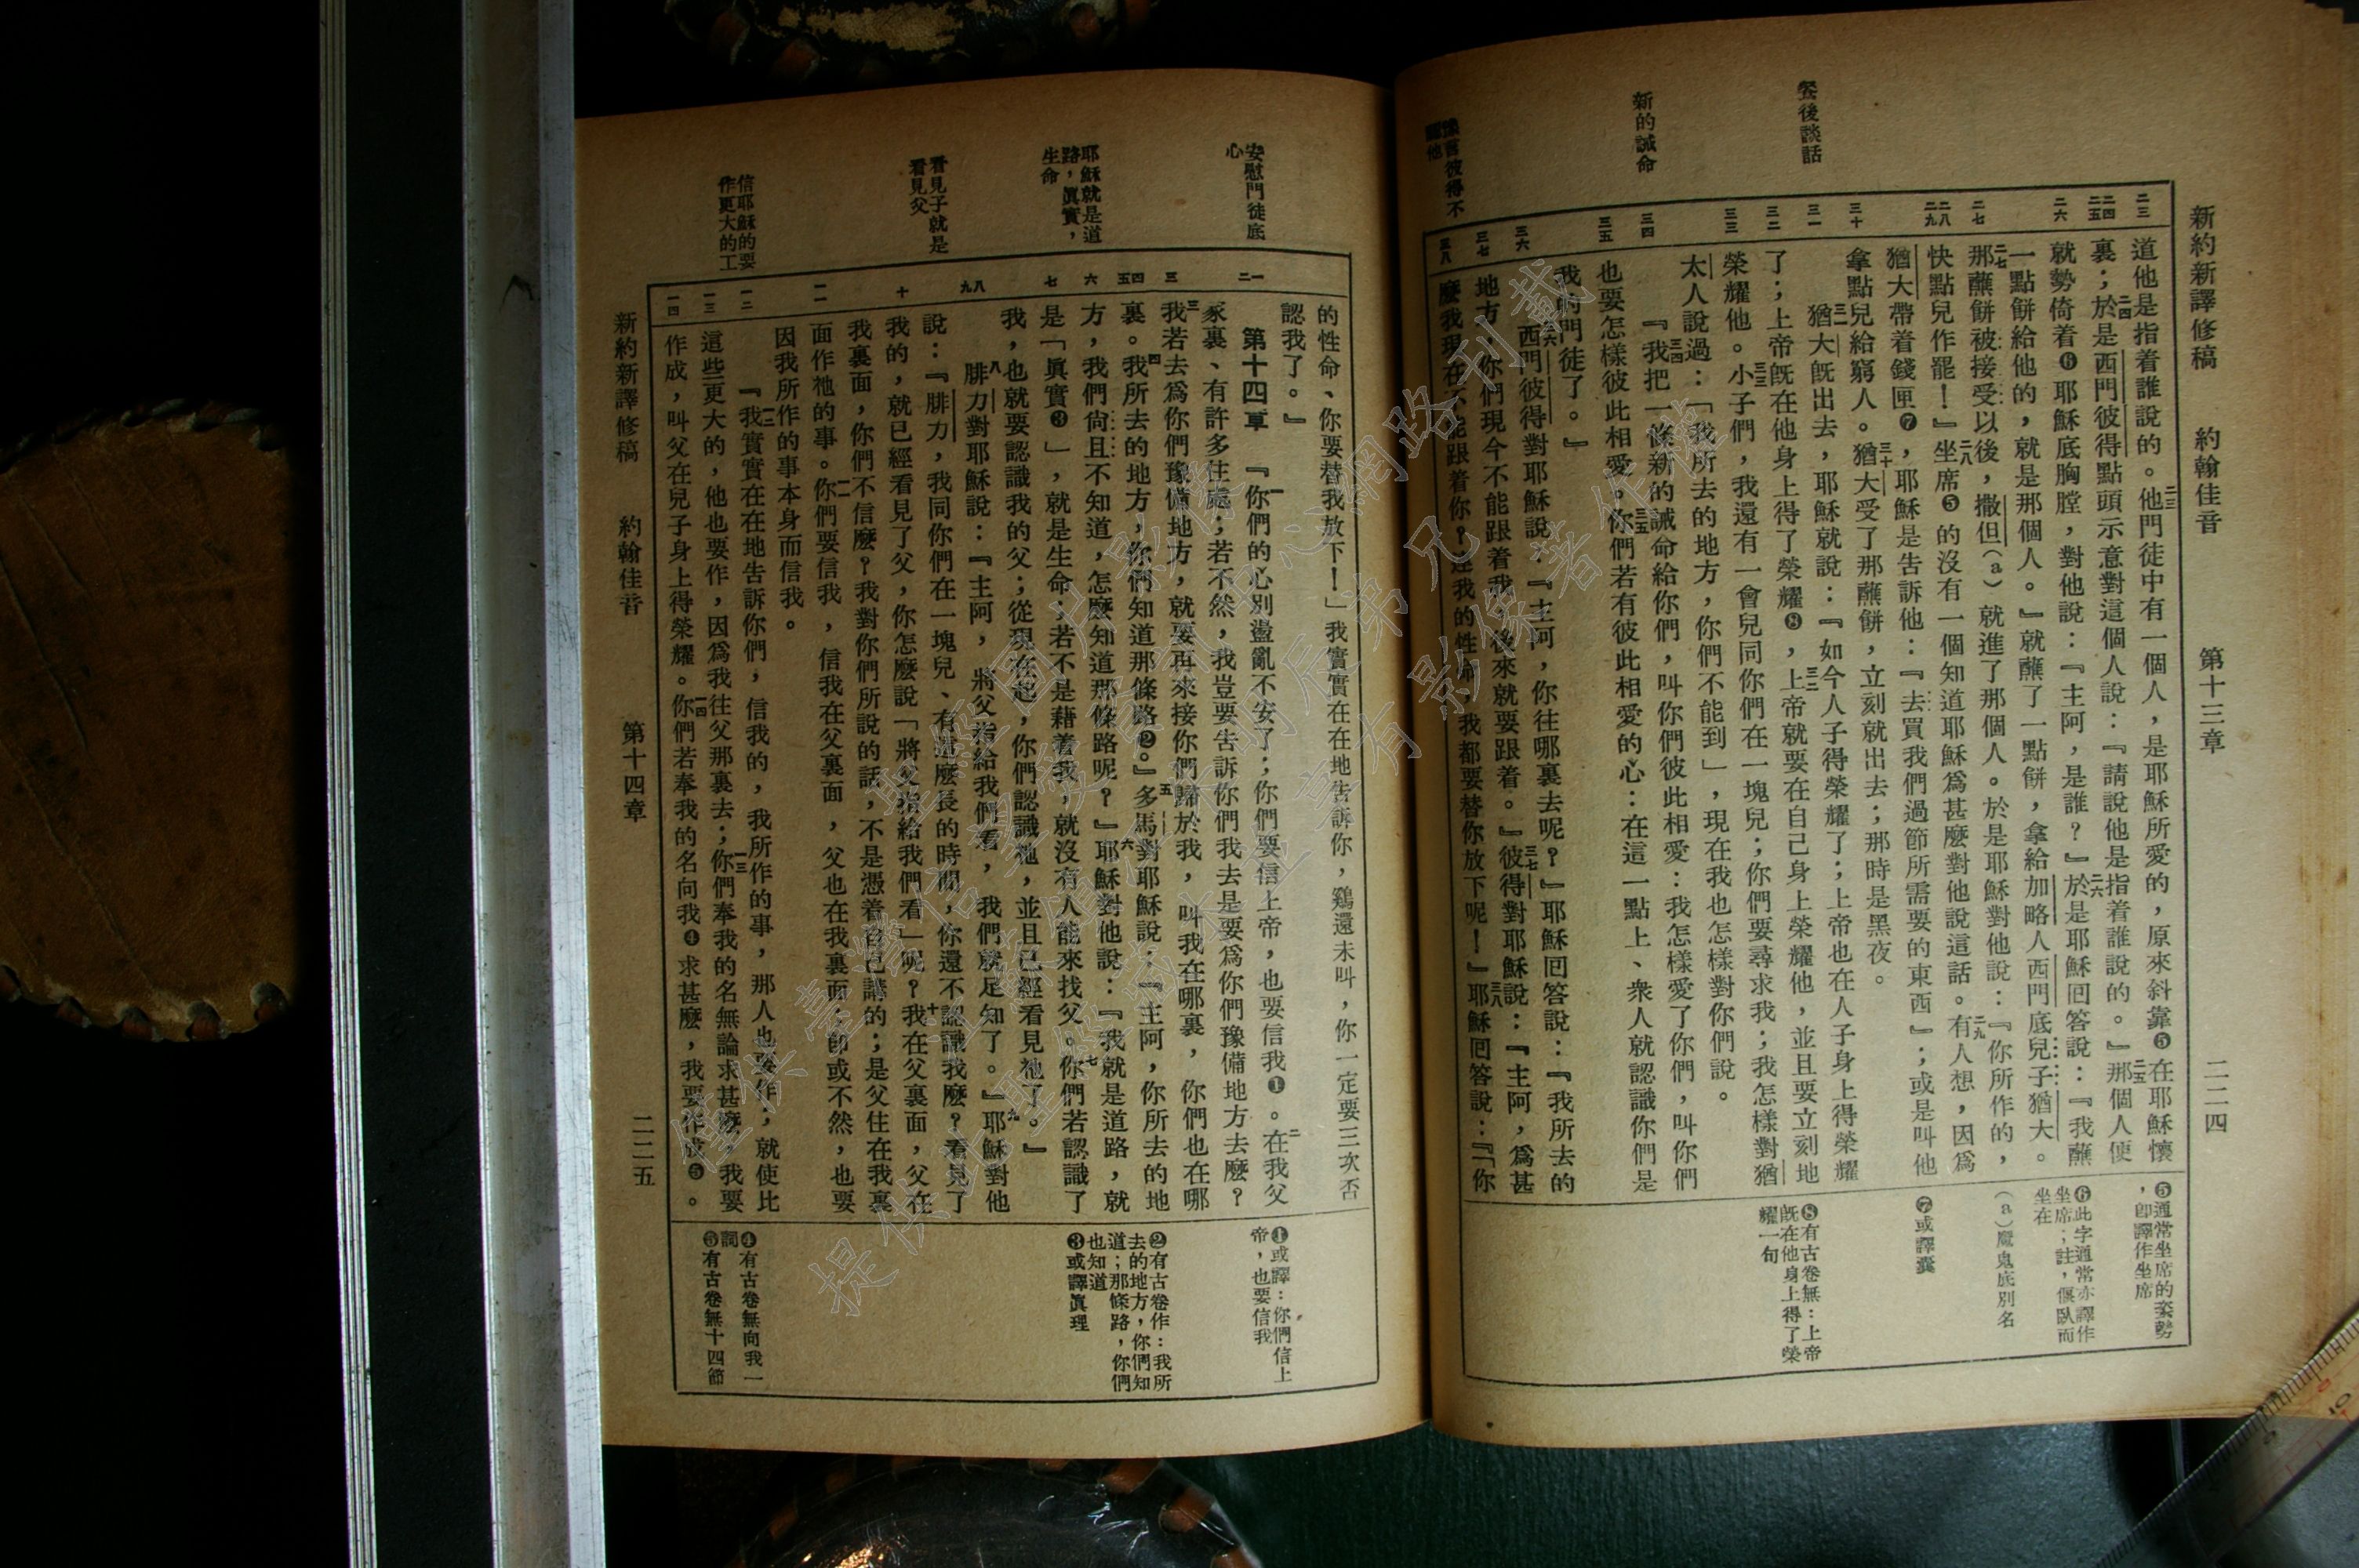 新約新譯修稿　約翰佳音　第十三章　二二四
餐後談話
新的誡命
豫言彼得不
認他
二三
二四
二五
二六
二七
二八
二九
三十
三一
三二
三三
三四
三五
三六
三七
三八
道他是指着誰說的。二三他門徒中有一個人，是耶穌所愛的，原來斜靠❺在耶穌懷
裏；二四於是西門彼得點頭示意對這個人說：『請說他是指着誰說的。』二五那個人便
就勢倚着❻耶穌底胸膛，對他說：『主阿，是誰？』二六於是耶穌回答說：『我蘸
一點餅給他的，就是那個人。』就蘸了一點餅，拿給加略人西門底兒子猶大。
二七那蘸餅被接受以後，撒但（a）就進了那個人。於是耶穌對他說：『你所作的，
快點兒作罷！』二八坐席❺的沒有一個知道耶穌爲甚麼對他說這話。二九有人想，因爲
猶大帶着錢匣❼，耶穌是告訴他：『去買我們過節所需要的東西』；或是叫他
拿點兒給窮人。三十猶大受了那蘸餅，立刻就出去；那時是黑夜。
三一猶大旣出去，耶穌就說：『如今人子得榮耀了；上帝也在人子身上得榮耀
了；三二上帝旣在他身上得了榮耀❽，上帝就要在自己身上榮耀他，並且要立刻地
榮耀他。三三小子們，我還有一會兒同你們在一塊兒；你們要尋求我；我怎樣對猶
太人說過：「我所去的地方，你們不能到」，現在我也怎樣對你們說。
『三四我把一條新的誡命給你們，叫你們彼此相愛：我怎樣愛了你們，叫你們
也要怎樣彼此相愛。三五你們若有彼此相愛的心：在這一點上、衆人就認識你們是
我的門徒了。』
三六西門彼得對耶穌說：『主阿，你往哪裏去呢？』耶穌回答說：『我所去的
地方，你們現今不能跟着我，後來就要跟着。』三七彼得對耶穌說：『主阿，爲甚
麼我現在不能跟着你？連我的性命、我都要替你放下呢！』三八耶穌回答說：『「你
❺通常坐席的姿勢
，卽譯作坐席
❻此字通常亦譯作
坐席；註，偃臥而
坐在
（a）魔鬼底別名
❼或譯囊
❽有古卷無：上帝
旣在他身上得了榮
耀一句
安慰門徒底
心
耶穌就是道
路，眞實，
生命
看見子就是
看見父
信耶穌的要
作更大的工
一
二
三
四
五
六
七
八
九
十
一一
一二
一三
一四
的性命、你要替我放下！」我實實在在地告訴你，鷄還未叫，你一定要三次否
認我了。』
第十四章　『一你們的心別盪亂不安了；你們要信上帝，也要信我❶。二在我父
家裏、有許多住處；若不然，我豈要告訴你們我去是要爲你們豫備地方去麼？
三我若去爲你們豫備地方，就要再來接你們歸於我，叫我在哪裏，你們也在哪
裏。四我所去的地方，你們知道那條路❷。』五多馬對耶穌說：『主阿，你所去的地
方，我們尙且不知道，怎麼知道那條路呢？』六耶穌對他說：『我就是道路，就
是「眞實❸」，就是生命；若不是藉着我，就沒有人能來找父。七你們若認識了
我，也就要認識我的父；從現在起，你們認識祂，並且已經看見祂了。』
八腓力對耶穌說：『主阿，將父指給我們看，我們就足知了。』九耶穌對他
說：『腓力，我同你們在一塊兒、有這麼長的時間，你還不認識我麼？看見了
我的，就已經看見了父，你怎麼說「將父指給我們看」呢？十我在父裏面，父在
我裏面，你們不信麼？我對你們所說的話，不是憑着自己講的；是父住在我裏
面作祂的事。一一你們要信我，信我在父裏面，父也在我裏面；卽或不然，也要
因我所作的事本身而信我。
『一二我實實在在地告訴你們，信我的，我所作的事，那人也要作；就使比
這些更大的，他也要作，因爲我往父那裏去；一三你們奉我的名無論求甚麼，我要
作成，叫父在兒子身上得榮耀。一四你們若奉我的名向我❹求甚麼，我要作成❺。
❶或譯：你們信上
帝，也要信我
❷有古卷作：我所
去的地方，你們知
道；那條路，你們
也知道
❸或譯眞理
❹有古卷無向我一
詞
❺有古卷無十四節
新約新譯修稿　約翰佳音　第十四章　二二五